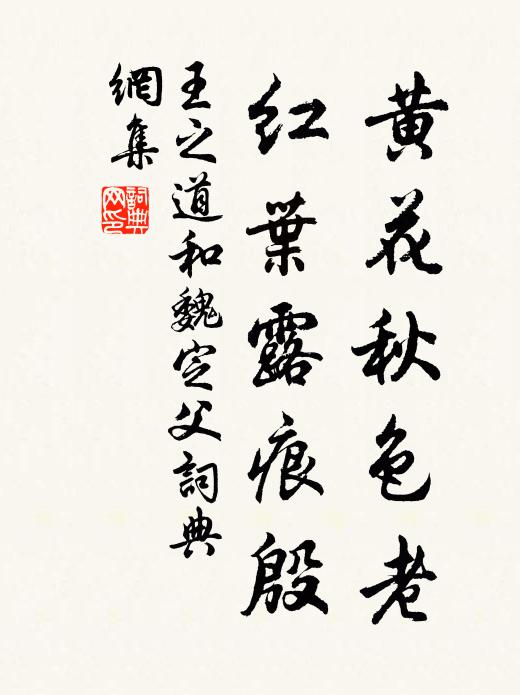 黄花秋色老
红葉露痕殷
王之道和魏定父詞典
網集
詞典
网印